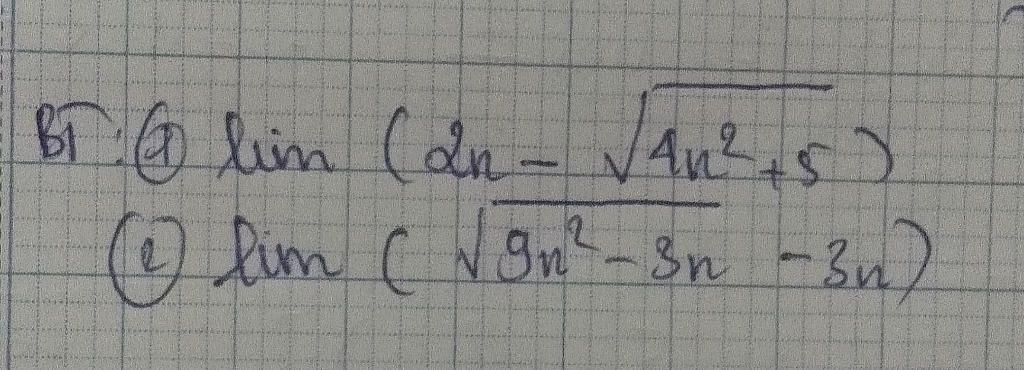 BT: ① lim (2n - √(4n²+5))
② lim (√(9n² - 3n) - 3n)